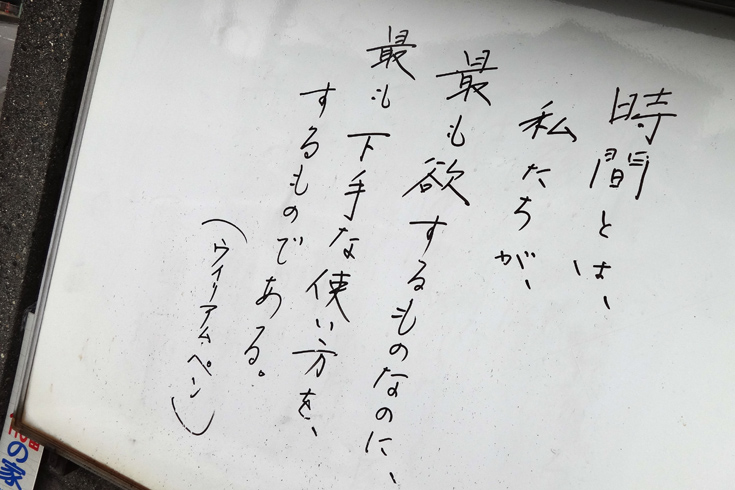 時間とは、
私たちが、
最も欲するものなのに、
最も下手な使い方を、
するものである。
（ウイリアム・ペン）
の家